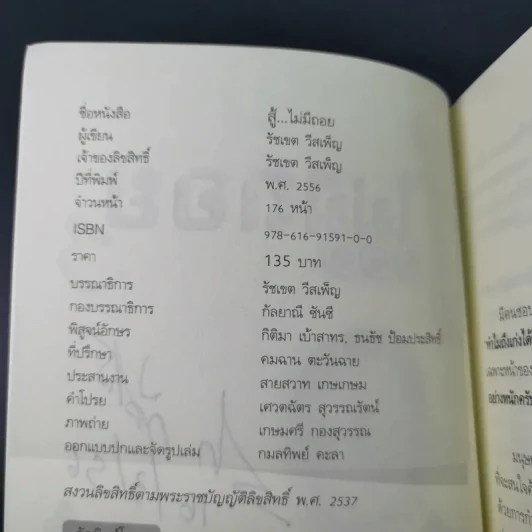 ชื่อหนังสือ สู้...ไม่มีถอย
ผู้เขียน รัชเขต วีสเพ็ญ
เจ้าของลิขสิทธิ์ รัชเขต วีสเพ็ญ
ปีที่พิมพ์ พ.ศ. 2556
จำวนหน้า 176 หน้า
ISBN 978-616-91591-0-0
ราคา 135 บาท
บรรณาธิการ รัชเขต วีสเพ็ญ
กองบรรณาธิการ กัลยาณี ชันซี
พิสูจน์อักษร กิติมา เบ้าสาทร, ธนธัช ป้อมประสิทธิ์
ที่ปรึกษา คมฉาน ตะวันฉาย
ประสานงาน สายสวาท เกษเกษม
คำโปรย เศวตฉัตร สุวรรณรัตน์
ภาพถ่าย เกษมศรี กองสุวรรณ
ออกแบบปกและจัดรูปเล่ม กมลทิพย์ คะลา
สงวนลิขสิทธิ์ตามพระราชบัญญัติลิขสิทธิ์ พ.ศ. 2537
มีคนชอบ
ทำไมถึงเก่งได้
เฉพาะหน้าของ
อย่างหนักครับ
มนุษย
ที่จะสนใจค้
ด้วยการกำ